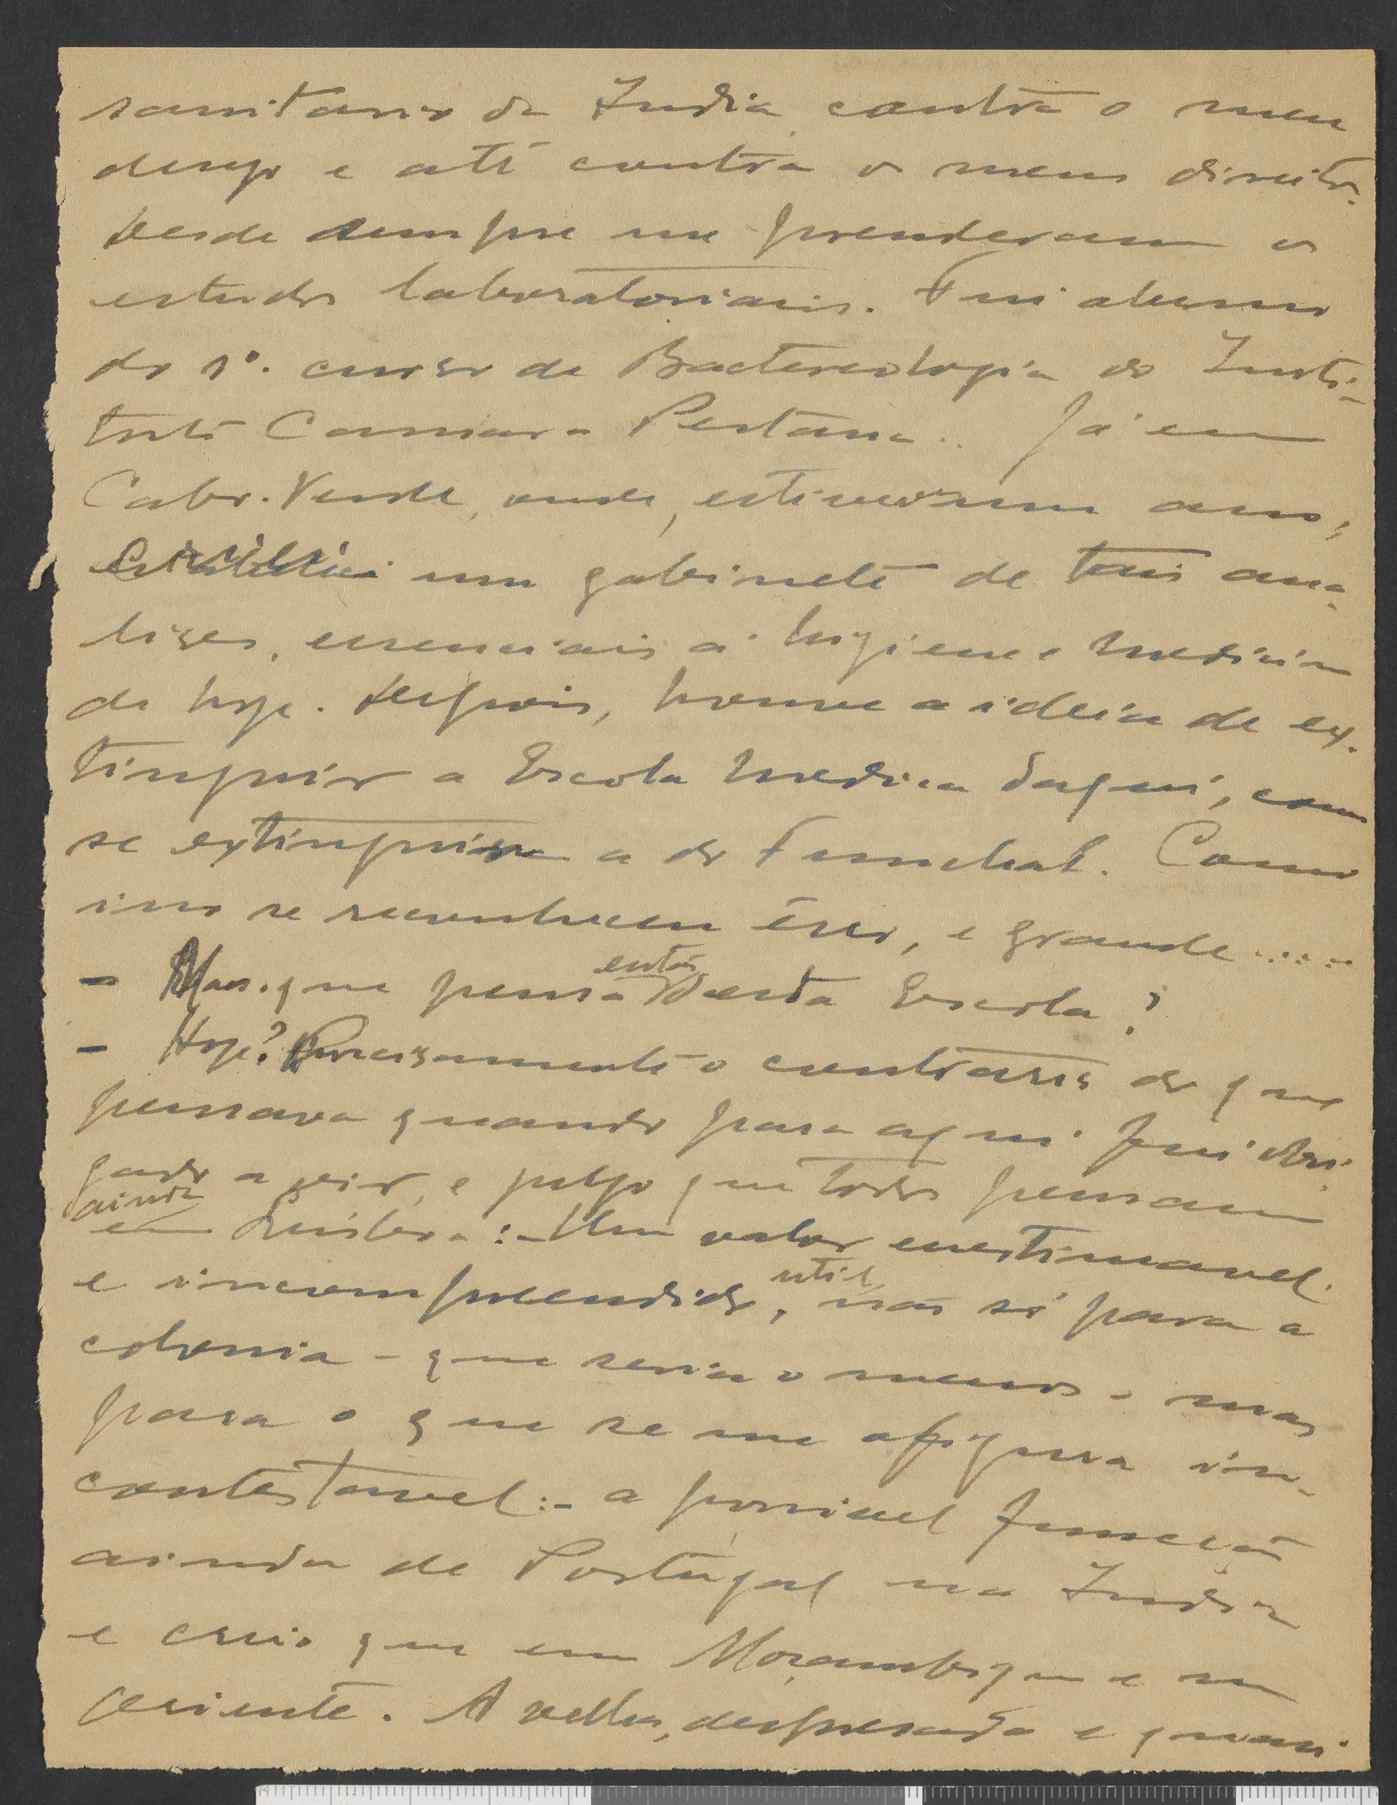 sanitario da India contra o meu
desejo e até contra os meus direitos.
Desde sempre me prenderam os
estudos laboratoriais. Fui alumno
do 1º. curso de Bactereologia do Insti-
tuto Camara Pestana.. Já em
Cabo. Verde, onde, estive um ano,
um gabinete de tais ana-
lises, essenciais á higiene e medicina
de hoje. Depois, houve a ideia de ex-
tinguir a Escola Medica daqui, como
se extinguira a do Funchal. Como
isso se reconheceu êrro, e grande.....
- Mas que pensa então desta Escola?
- Hoje? Precisamente o contrario do que
pensava quando para aqui fui obri-
gado a vir, e julgo que todos pensam
ainda em Lisboa:- Um valor inestimavel
e incompreendido, util, não só para a
colonia - que seria o menos - mas
para o que se me afigura in-
contestavel:- a possivel função
ainda de Portugal na India
e creio que em Moçambique e no
oriente. A velha, despresada e quasi